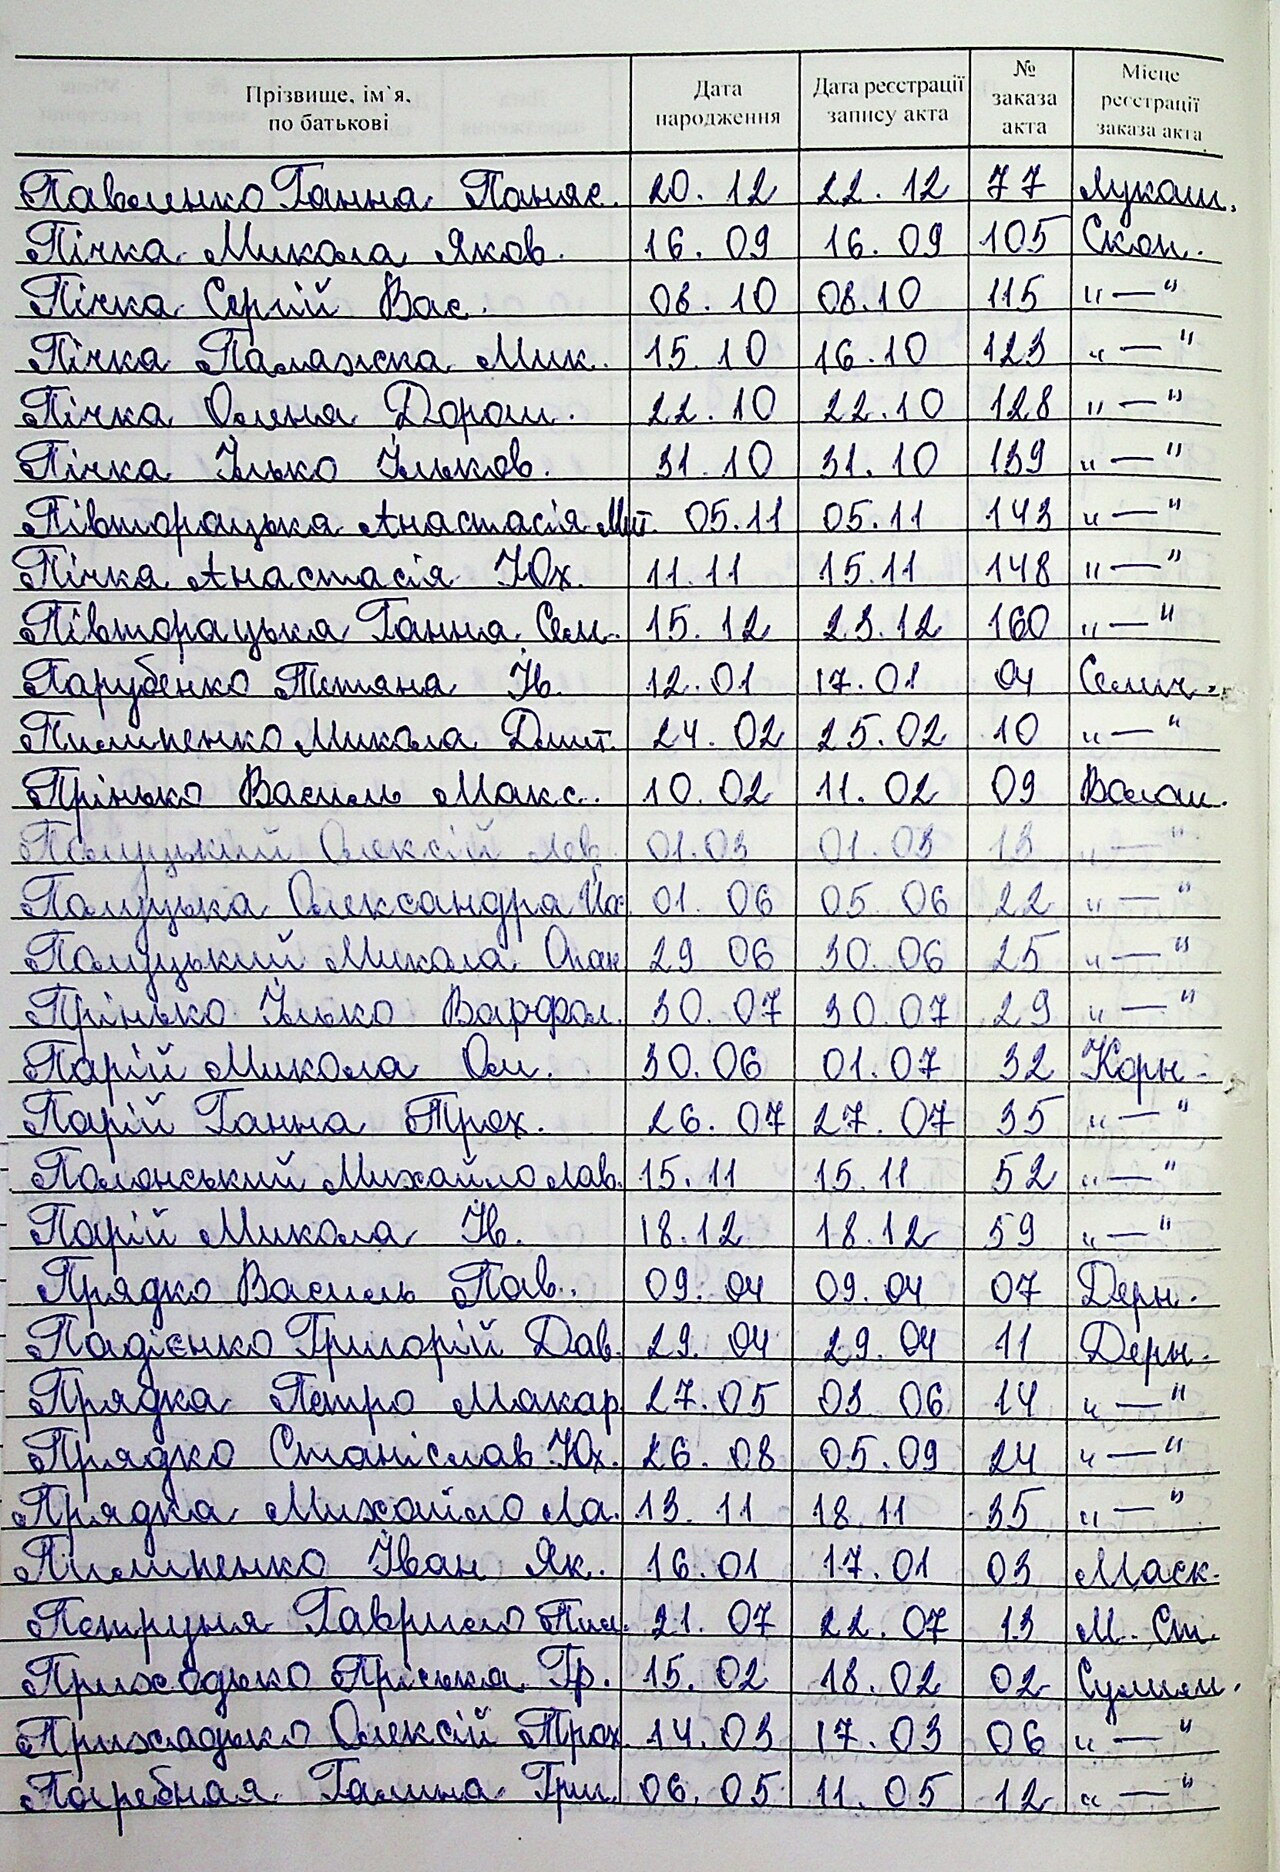 Прізвище, ім`я, по батькові Дата народження Дата реєстрації запису акта № заказа акта Місце реєстрації заказа акта
Павленко Ганна Панас. 20. 12 22. 12 77 Лукаш.
Пічка Микола Яков. 16. 09 16. 09 105 Скоп.
Пічка Сергій Вас. 08. 10 08.10 115 "—"
Пічка Палажка Мик. 15. 10 16.10 123 "—"
Пічка Олена Дорош. 22. 10 22.10 128 "—"
Пічка Ілько Ільков. 31. 10 31. 10 139 "—"
Півторацька Анастасія Мит. 05.11 05.11 143 "—"
Пічка Анастасія Юх. 11.11 15.11 148 "—"
Півторацька Ганна Сем. 15. 12 23.12 160 "—"
Парубенко Тетяна Ів. 12.01 17.01 04 Селич.
Пилипенко Микола Дмит. 24. 02 25.02 10 "—"
Прінько Василь Макс. 10. 02 11. 02 09 Волош.
Полуцький Олексій Лев. 01.03 01.03 13 "—"
Полуцька Олександра 01. 06 05. 06 22 "—"
Полуцький Микола Опан 29 06 30. 06 25 "—"
Прінько Ілько Варфол. 30. 07 30. 07 29 "—"
Парій Микола Ол. 30. 06 01. 07 32 Корн.
Парій Ганна Трох. 26. 07 27. 07 35 "—"
Полонський Михайло Лав. 15. 11 15. 11 52 "—"
Парій Микола Ів. 18.12 18.12 59 "—"
Прядко Василь Пав. 09. 04 09. 04 07 Дерн.
Падієнко Григорій Дав. 29. 04 29. 04 11 Дерн.
Прядка Петро Макар. 27. 05 03 06 14 "—"
Прядко Станіслав Юх. 26. 08 05. 09 24 "—"
Прядка Михайло Ла. 13. 11 18. 11 35 "—"
Пилипенко Іван Як. 16.01 17. 01 03 Маск.
Петруня Гаврило Пил. 21. 07 22. 07 13 М. Ст.
Приходько Пріська Гр. 15. 02 18. 02 02 Сулим.
Приходько Олексій Трох 14. 03 17. 03 06 "—"
Погребная Галина Гри. 06. 05 11. 05 12 "—"